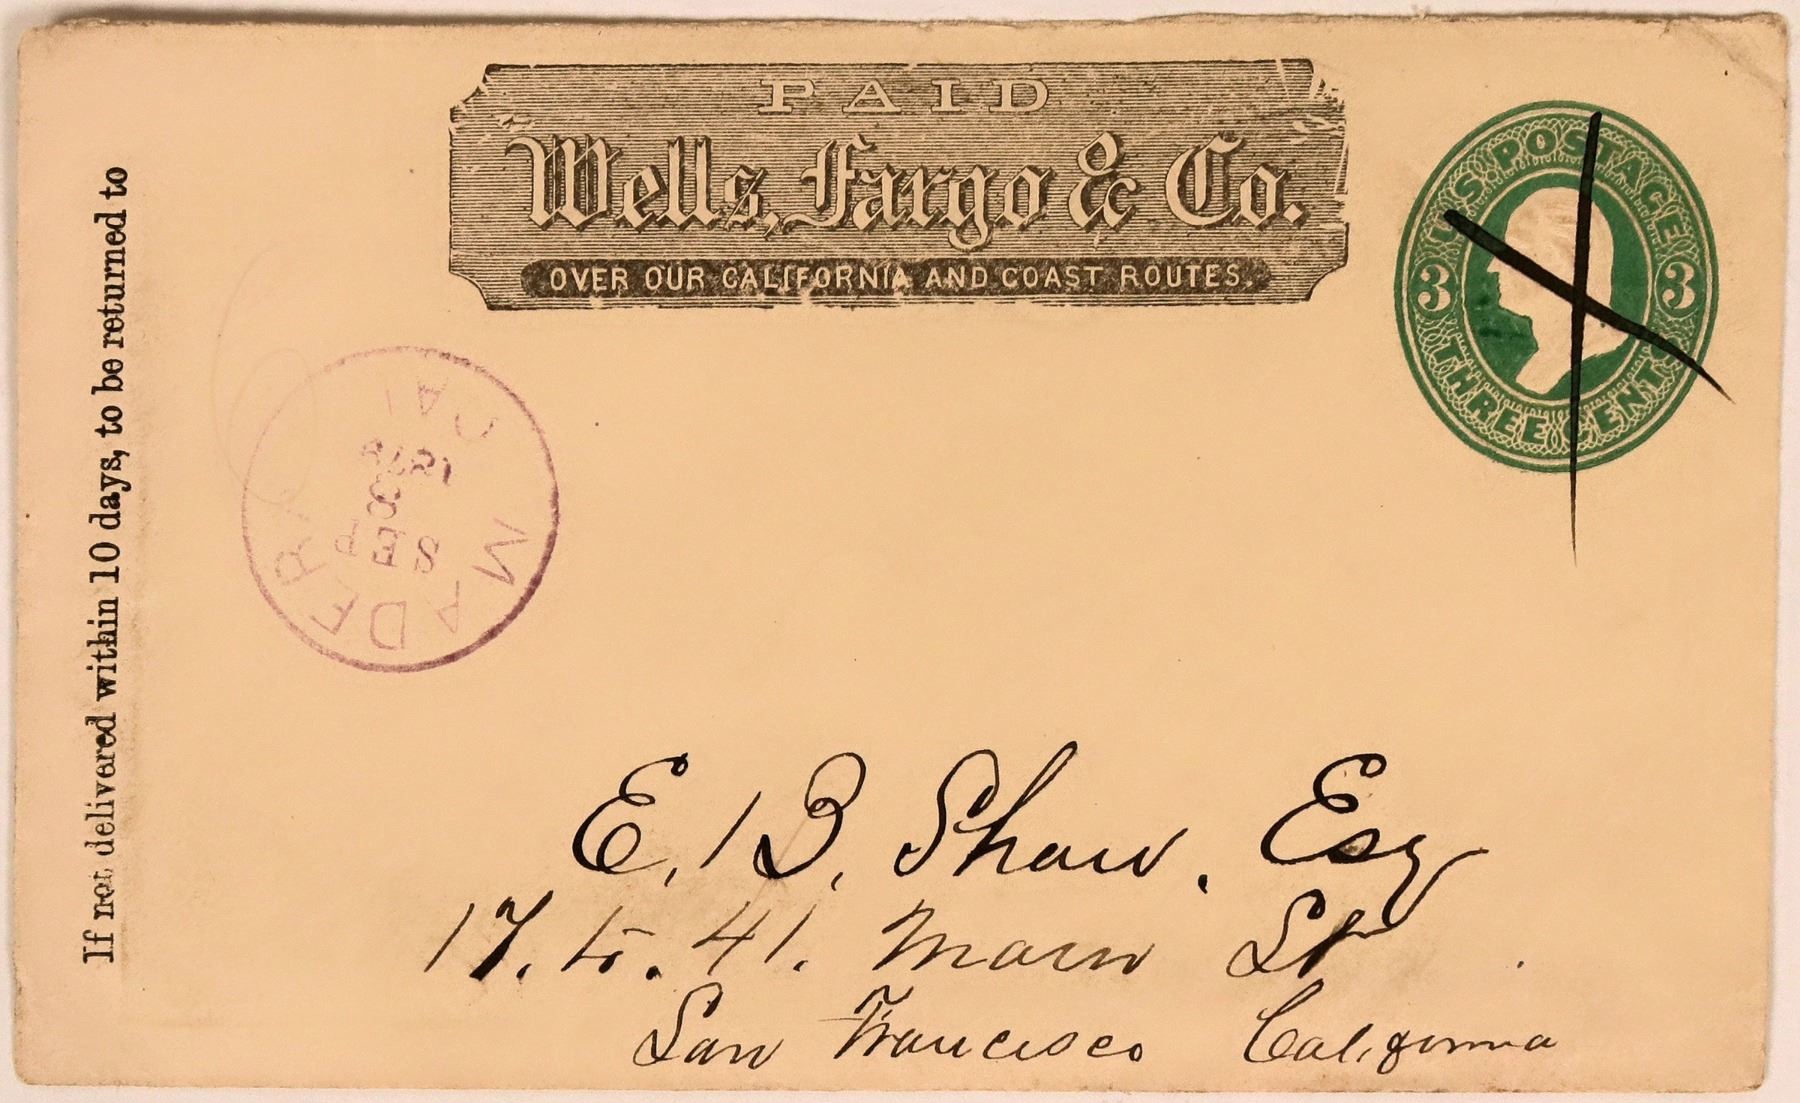 PAID
Wells, Fargo & Co.
OVER OUR CALIFORNIA AND COAST ROUTES.
U.S. POSTAGE
3 3
THREE CENTS
If not delivered within 10 days, to be returned to
MADERA CAL
SEP
1878
E. B. Shaw. Esq
17. to. 41. Main St
San Francisco California